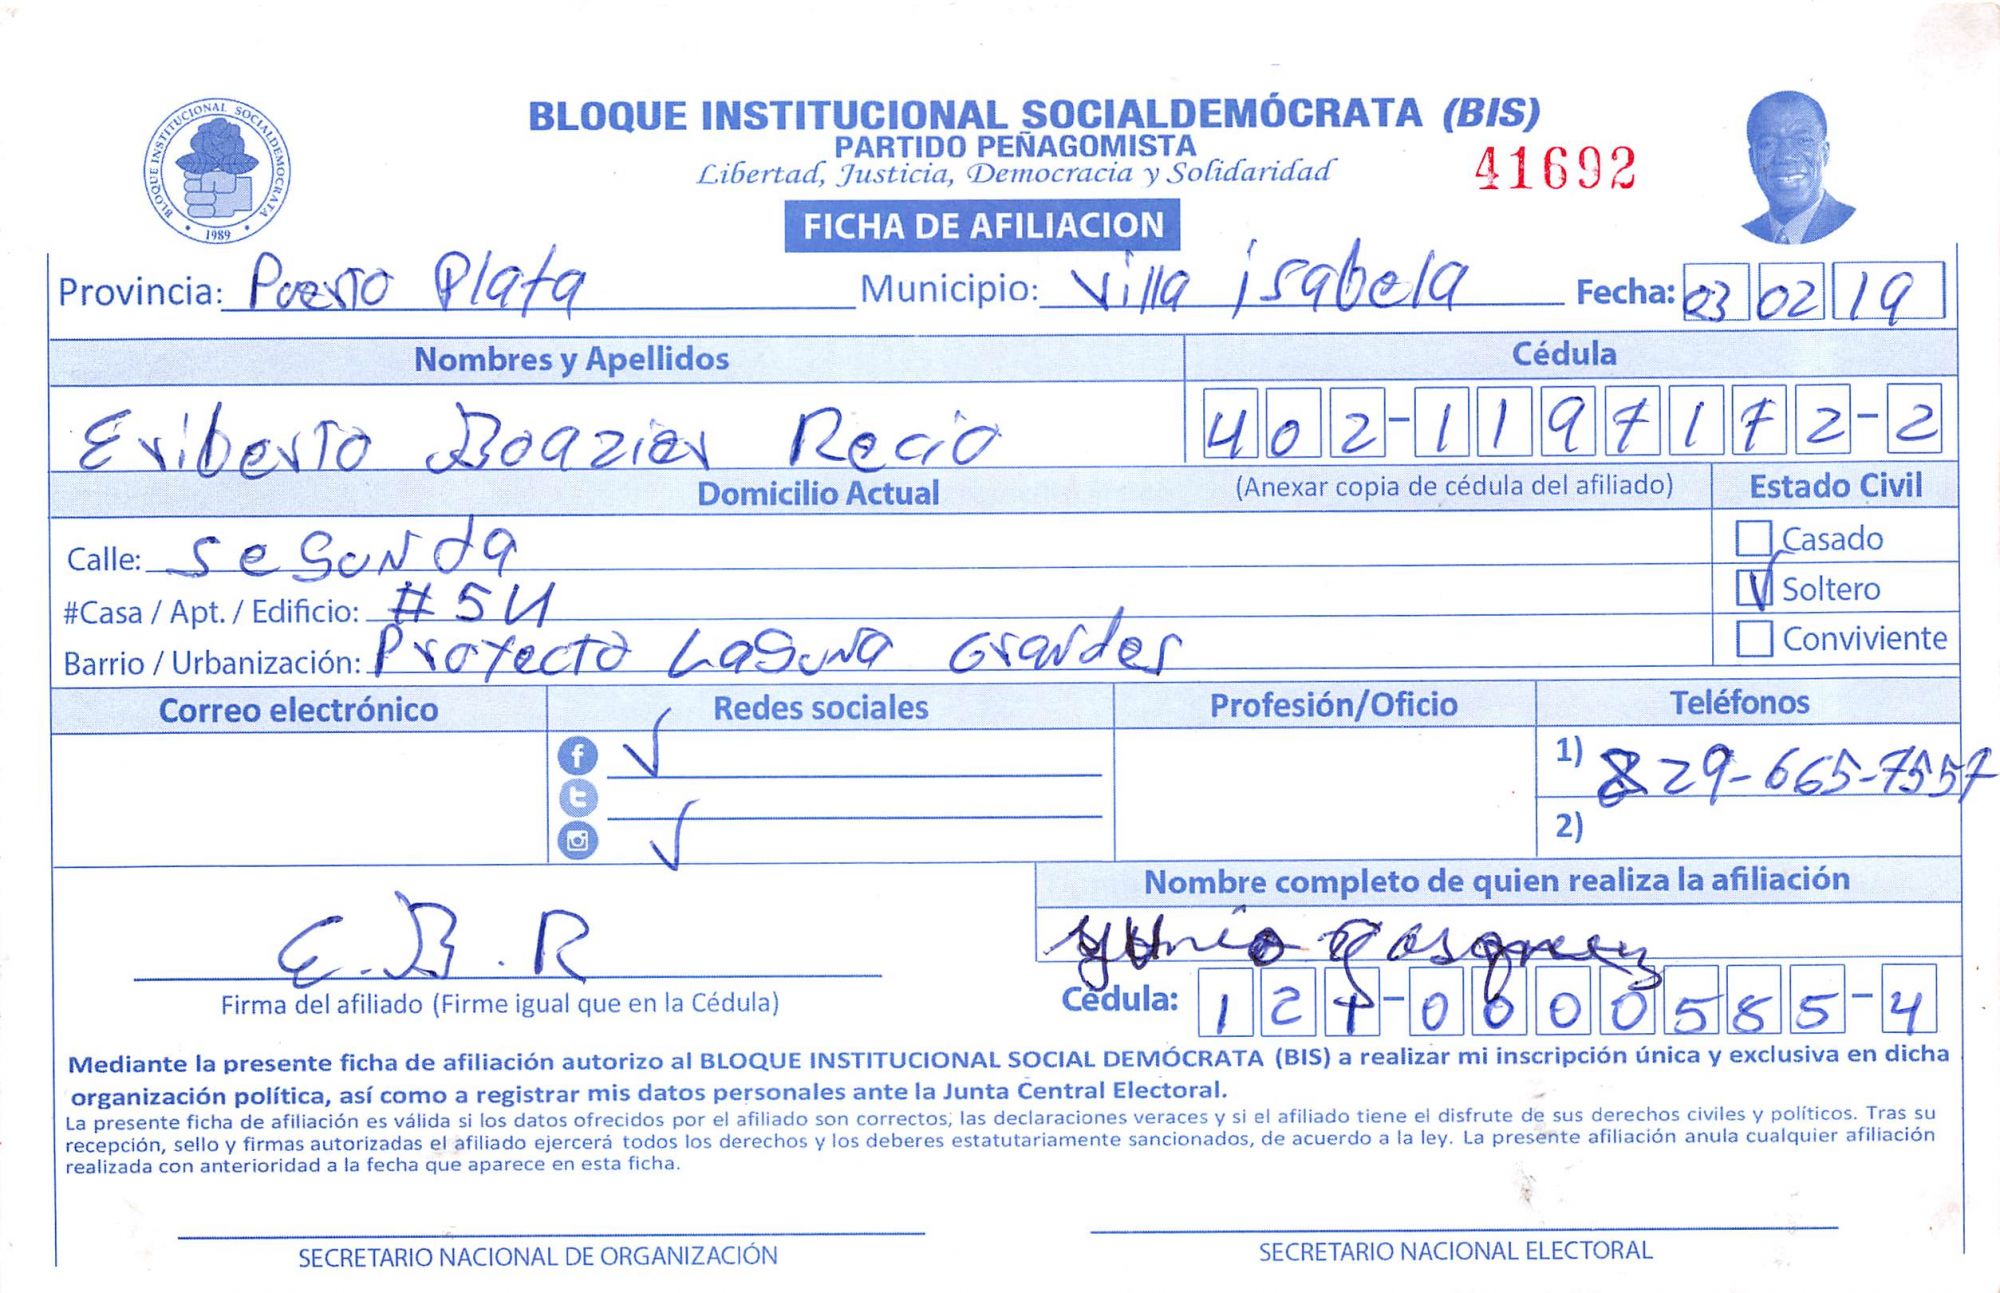 BLOQUE INSTITUCIONAL SOCIALDEMOCRATA
1989
BLOQUE INSTITUCIONAL SOCIALDEMÓCRATA (BIS)
PARTIDO PEÑAGOMISTA
Libertad, Justicia, Democracia y Solidaridad
41692
FICHA DE AFILIACION
Provincia: Puerto Plata Municipio: Villa isabela Fecha: 03 02 19
Nombres y Apellidos Cédula
Eriberto Boazier Recio 402-1197172-2
Domicilio Actual (Anexar copia de cédula del afiliado) Estado Civil
Calle: Segunda Casado
#Casa / Apt. / Edificio: #54 Soltero
Barrio / Urbanización: Proyecto Laguna Grandes Conviviente
Correo electrónico Redes sociales Profesión/Oficio Teléfonos
1) 829-665-7557
2)
Nombre completo de quien realiza la afiliación
E.B.R
Firma del afiliado (Firme igual que en la Cédula) Cédula: 121-0000585-4
Mediante la presente ficha de afiliación autorizo al BLOQUE INSTITUCIONAL SOCIAL DEMÓCRATA (BIS) a realizar mi inscripción única y exclusiva en dicha
organización política, así como a registrar mis datos personales ante la Junta Central Electoral.
La presente ficha de afiliación es válida si los datos ofrecidos por el afiliado son correctos, las declaraciones veraces y si el afiliado tiene el disfrute de sus derechos civiles y políticos. Tras su
recepción, sello y firmas autorizadas el afiliado ejercerá todos los derechos y los deberes estatutariamente sancionados, de acuerdo a la ley. La presente afiliación anula cualquier afiliación
realizada con anterioridad a la fecha que aparece en esta ficha.
SECRETARIO NACIONAL DE ORGANIZACIÓN SECRETARIO NACIONAL ELECTORAL